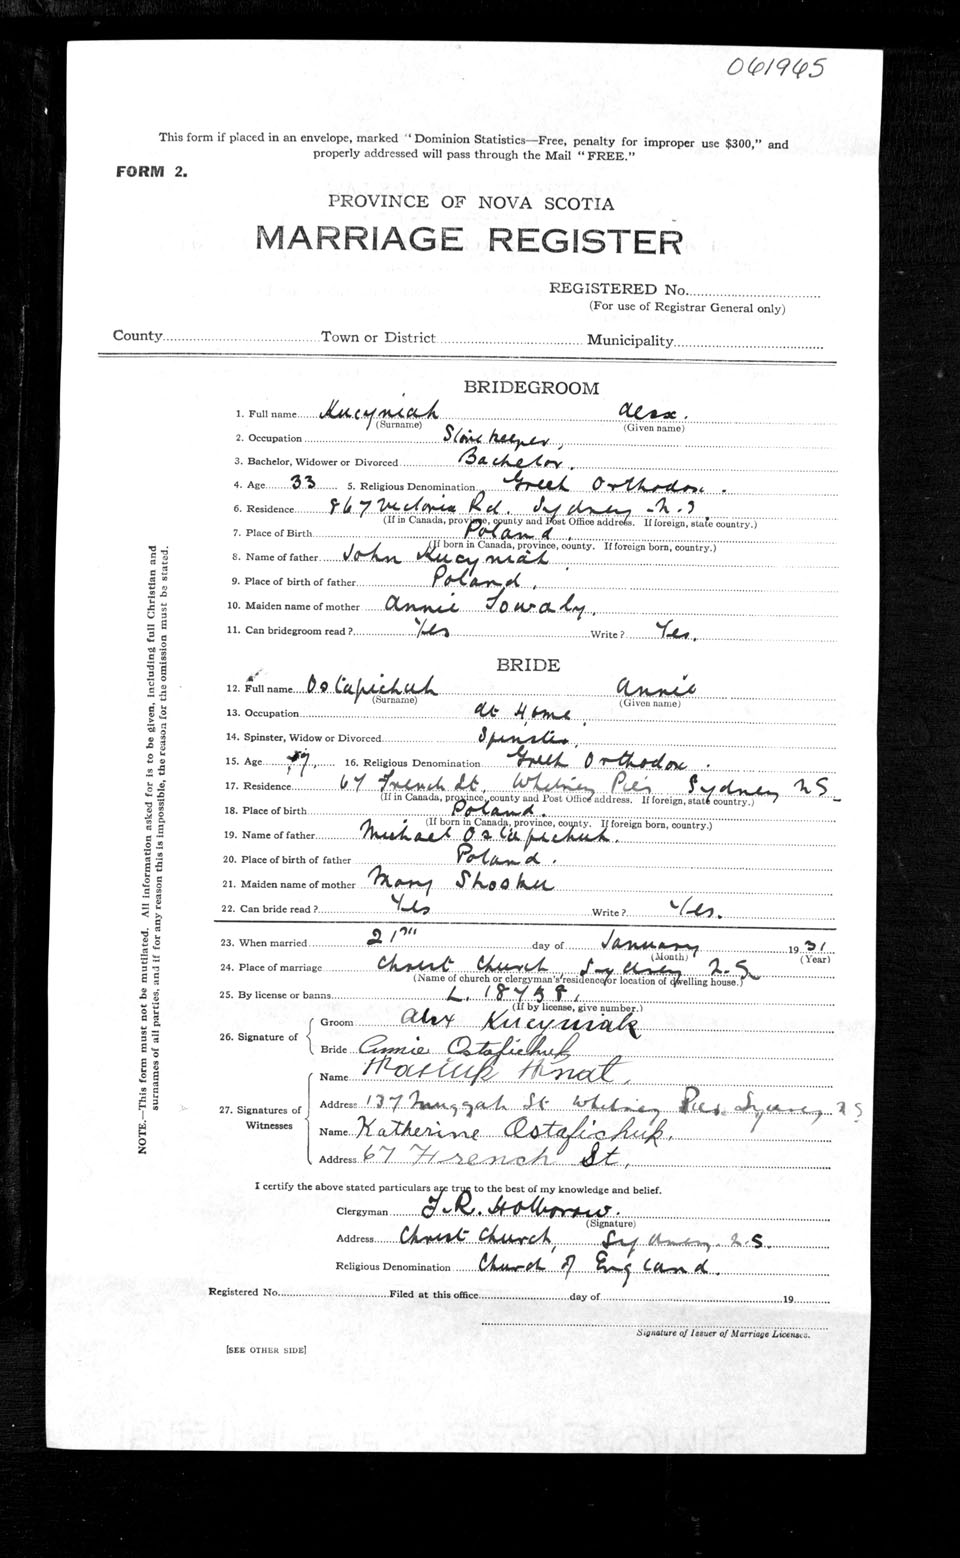 061965
This form if placed in an envelope, marked "Dominion Statistics—Free, penalty for improper use $300," and
properly addressed will pass through the Mail "FREE."
FORM 2.
PROVINCE OF NOVA SCOTIA
MARRIAGE REGISTER
REGISTERED No.
(For use of Registrar General only)
County Town or District Municipality
BRIDEGROOM
1. Full name Kucyniak Alex.
(Surname) (Given name)
2. Occupation Store keeper,
3. Bachelor, Widower or Divorced Bachelor.
4. Age 33 5. Religious Denomination Greek Orthodox.
6. Residence 867 Victoria Rd. Sydney N.S.
(If in Canada, province, county and Post Office address. If foreign, state country.)
7. Place of Birth Poland,
(If born in Canada, province, county. If foreign born, country.)
8. Name of father John Kucyniak
9. Place of birth of father Poland.
10. Maiden name of mother Annie
11. Can bridegroom read? Yes Write? Yes.
BRIDE
12. Full name Ostapichuk Annie
(Surname) (Given name)
13. Occupation At Home,
14. Spinster, Widow or Divorced Spinster,
15. Age 16. Religious Denomination Greek Orthodox.
17. Residence 67 French St. Whitney Pier Sydney N.S.
(If in Canada, province, county and Post Office address. If foreign, state country.)
18. Place of birth Poland.
(If born in Canada, province, county. If foreign born, country.)
19. Name of father Michael Ostapichuk.
20. Place of birth of father Poland.
21. Maiden name of mother Mary
22. Can bride read? Yes Write? Yes.
23. When married 21st day of January 1931
(Month) (Year)
24. Place of marriage Christ Church, Sydney N.S.
(Name of church or clergyman's residence or location of dwelling house.)
25. By license or banns L. 18758,
(If by license, give number.)
26. Signature of Groom Alex Kucyniak
Bride Annie Ostafichuk
27. Signatures of Witnesses Name Hnat.
Address 137 Muggah St Whitney Pier Sydney N S
Name Katherine Ostafichuk.
Address 67 French St,
I certify the above stated particulars are true to the best of my knowledge and belief.
Clergyman T.R. Holborow.
(Signature)
Address Christ Church, Sydney. N.S.
Religious Denomination Church of England.
Registered No. Filed at this office day of 19
Signature of Issuer of Marriage Licenses.
[SEE OTHER SIDE]
NOTE.—This form must not be mutilated. All information asked for is to be given, including full Christian and
surnames of all parties, and if for any reason this is impossible, the reason for the omission must be stated.